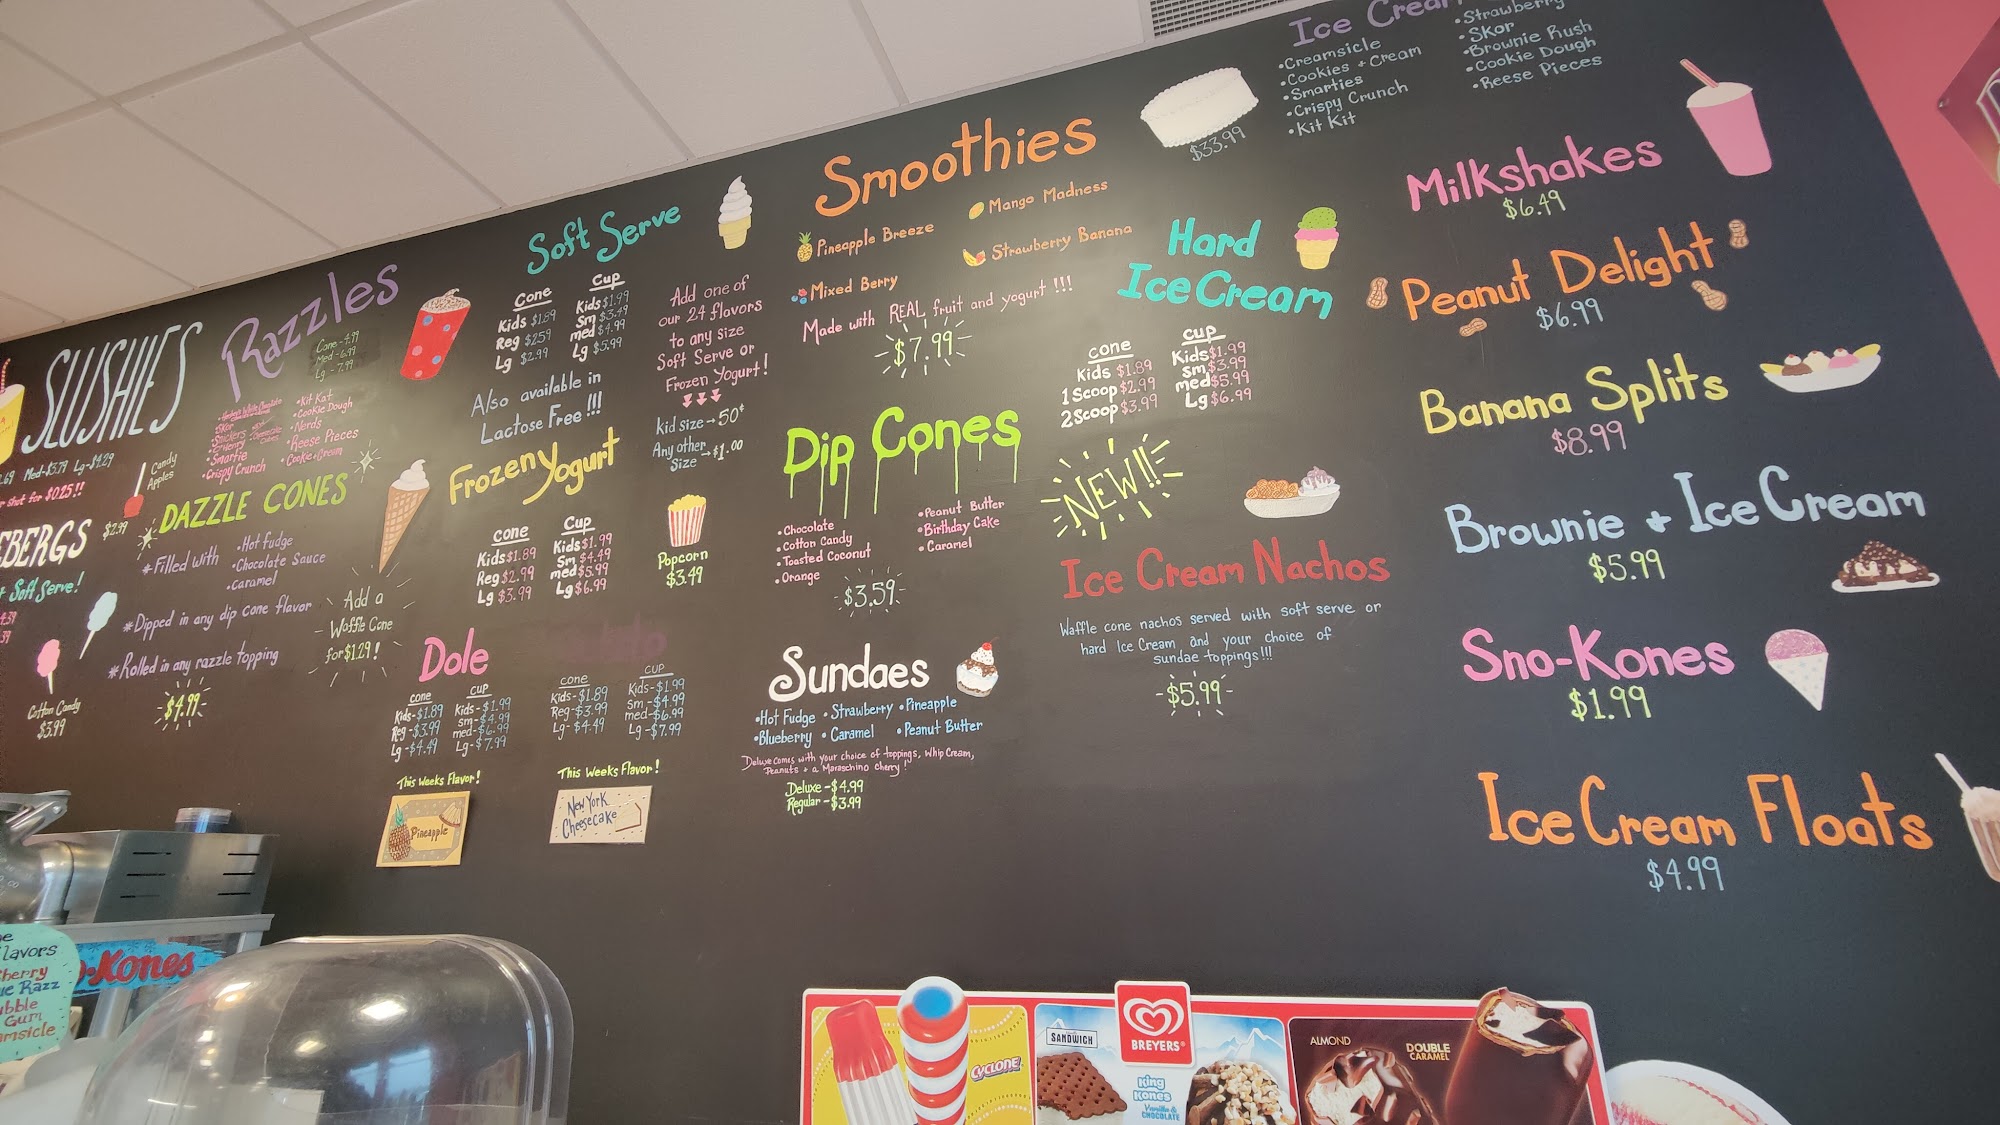 SLUSHIES
Med-$3.79 Lg-$4.29
shot for $0.25!!
Candy
Apples
$2.99
EBERGS
Soft Serve!
Cotton Candy
$3.99
Razzles
Cone-4.99
Med-6.99
Lg-7.99
•Skor
•Smartie
•Crispy Crunch
•Kit Kat
•Cookie Dough
•Nerds
•Reese Pieces
•Cookie & Cream
DAZZLE CONES
*Filled with
•Hot fudge
•Chocolate Sauce
•Caramel
*Dipped in any dip cone flavor
*Rolled in any razzle topping
-$4.99-
Add a
Waffle Cone
for $1.29!
Soft Serve
Cone
Kids $1.89
Reg $2.59
Lg $2.99
Cup
Kids $1.99
Sm $3.49
med $4.99
Lg $5.99
Also available in
Lactose Free!!!
Add one of
our 24 flavors
to any size
Soft Serve or
Frozen Yogurt!
kid size → 50¢
Any other
Size → $1.00
Frozen Yogurt
cone
Kids $1.89
Reg $2.99
Lg $3.99
Cup
Kids $1.99
Sm $4.49
med $5.99
Lg $6.99
Popcorn
$3.49
Dole
cone
Kids-$1.89
Reg-$3.99
Lg-$4.49
cup
Kids-$1.99
Sm-$4.99
med-$6.99
Lg-$7.99
This Weeks Flavor!
Pineapple
cone
Kids-$1.89
Reg-$3.99
Lg-$4.49
cup
Kids-$1.99
Sm-$4.99
med-$6.99
Lg-$7.99
This Weeks Flavor!
New York
Cheesecake
Smoothies
Pineapple Breeze
Mango Madness
Mixed Berry
Strawberry Banana
Made with REAL fruit and yogurt!!!
-$7.99-
Dip Cones
•Chocolate
•Cotton Candy
•Toasted Coconut
•Orange
•Peanut Butter
•Birthday Cake
•Caramel
-$3.59-
Sundaes
•Hot Fudge •Strawberry •Pineapple
•Blueberry •Caramel •Peanut Butter
Deluxe comes with your choice of toppings, Whip Cream,
Peanuts + a Maraschino Cherry!
Deluxe-$4.99
Regular-$3.99
$33.99
Ice Cream
•Creamsicle
•Cookies + Cream
•Smarties
•Crispy Crunch
•Kit Kit
•Strawberry
•Skor
•Brownie Rush
•Cookie Dough
•Reese Pieces
Hard
Ice Cream
cone
Kids $1.89
1 Scoop $2.99
2 Scoop $3.99
cup
Kids $1.99
Sm $3.99
med $5.99
Lg $6.99
NEW!!
Ice Cream Nachos
Waffle cone nachos served with soft serve or
hard Ice Cream and your choice of
sundae toppings!!!
-$5.99-
Milkshakes
$6.49
Peanut Delight
$6.99
Banana Splits
$8.99
Brownie + Ice Cream
$5.99
Sno-Kones
$1.99
Ice Cream Floats
$4.99
lavors
herry
ue Razz
ubble
Gum
amsicle
-Kones
CYCLONE
SANDWICH
BREYERS
King
Kones
Vanilla &
CHOCOLATE
ALMOND
DOUBLE
CARAMEL